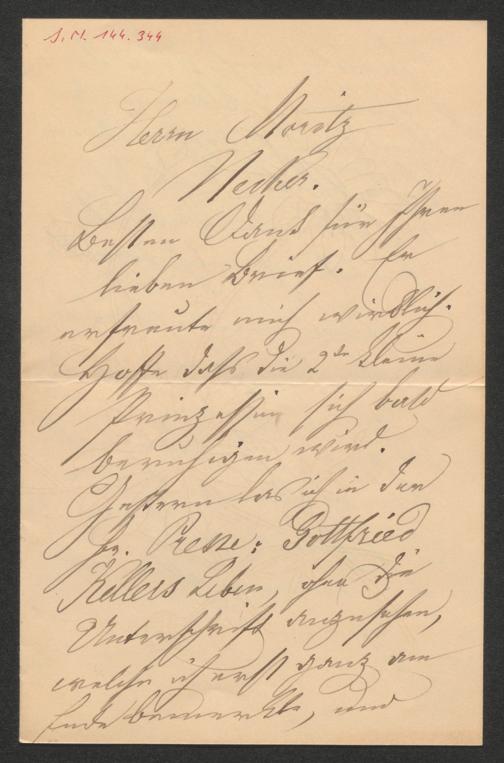 J. N. 144.344
Herrn Moritz
Necker.
Besten Dank für Ihren
lieben Brief. Er
erfreute mich wirklich.
Hoffe daß die 2te kleine
Prinzessin sich bald
beruhigen wird.
Gestern las ich in der
Pr. Presse: Gottfried
Kellers Leben, ohne die
Unterschrift anzusehen,
welche ich erst ganz am
Ende bemerkte, und